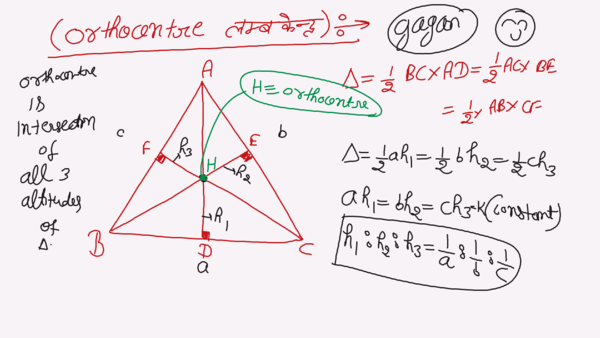 (orthocentre लम्ब केन्द्र) :
gagan
orthocentre
is
Intersection
of
all 3
altitudes
of
Δ.
A
H ≡ orthocentre
F
E
c
b
h3
H
h2
h1
B
D
C
a
Δ = 1/2 BC × AD = 1/2 AC × BE
= 1/2 × AB × CF
Δ = 1/2 ah1 = 1/2 bh2 = 1/2 ch3
ah1 = bh2 = ch3 = K (constant)
h1 : h2 : h3 = 1/a : 1/b : 1/c